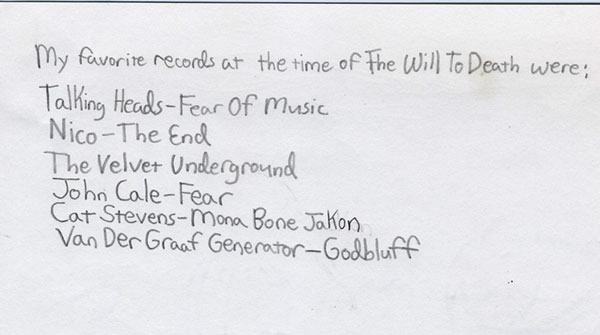 My favorite records at the time of The Will To Death were:
Talking Heads-Fear Of Music
Nico-The End
The Velvet Underground
John Cale-Fear
Cat Stevens-Mona Bone Jakon
Van Der Graaf Generator-Godbluff